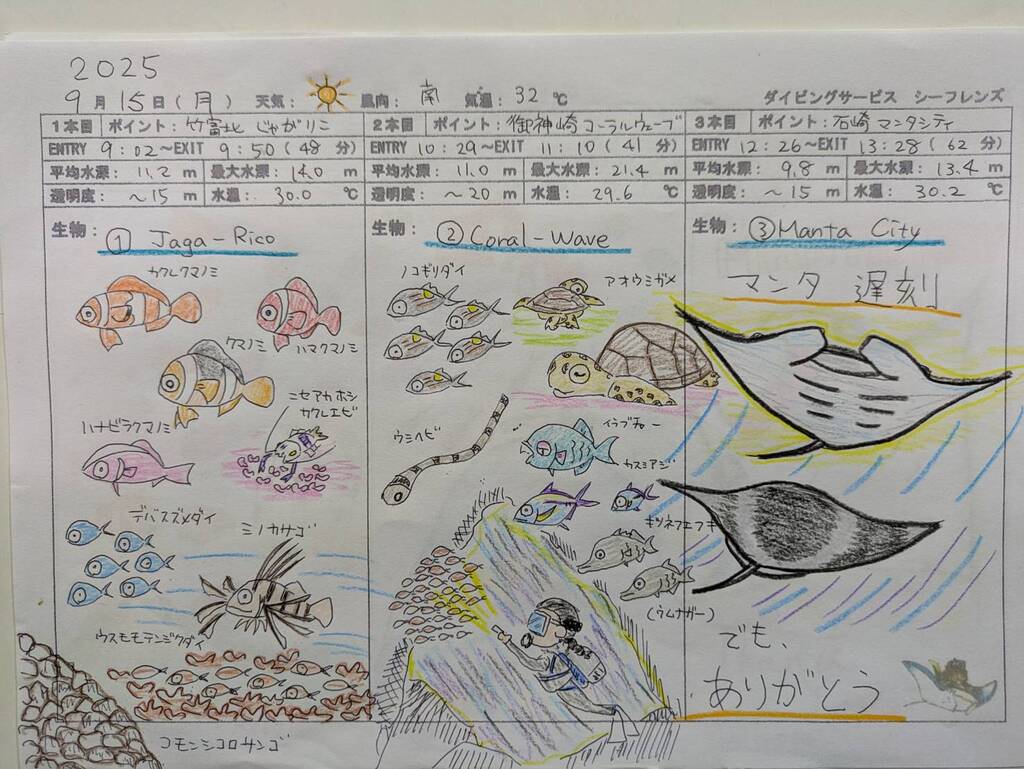 2025
9月15日(月) 天気: 風向: 南 気温: 32℃ ダイビングサービス シーフレンズ
1本目 ポイント: 竹富北 じゃがりこ
ENTRY 9:02~EXIT 9:50(48分)
平均水深: 11.2 m 最大水深: 14.0 m
透明度: ~15 m 水温: 30.0 ℃
生物: ① Jaga-Rico
カクレクマノミ
ハマクマノミ
クマノミ
ニセアカホシ
カクレエビ
ハナビラクマノミ
デバスズメダイ
ミノカサゴ
ウスモモテンジクダイ
コモンシコロサンゴ
2本目 ポイント: 御神崎 コーラルウェーブ
ENTRY 10:29~EXIT 11:10(41分)
平均水深: 11.0 m 最大水深: 21.4 m
透明度: ~20 m 水温: 29.6 ℃
生物: ② Coral-Wave
ノコギリダイ
アオウミガメ
ウミヘビ
イラブチャー
カスミアジ
キツネフエフキ
(ウムナガー)
3本目 ポイント: 石崎 マンタシティ
ENTRY 12:26~EXIT 13:28(62分)
平均水深: 9.8 m 最大水深: 13.4 m
透明度: ~15 m 水温: 30.2 ℃
生物: ③ Manta City
マンタ 遅刻
でも、
ありがとう